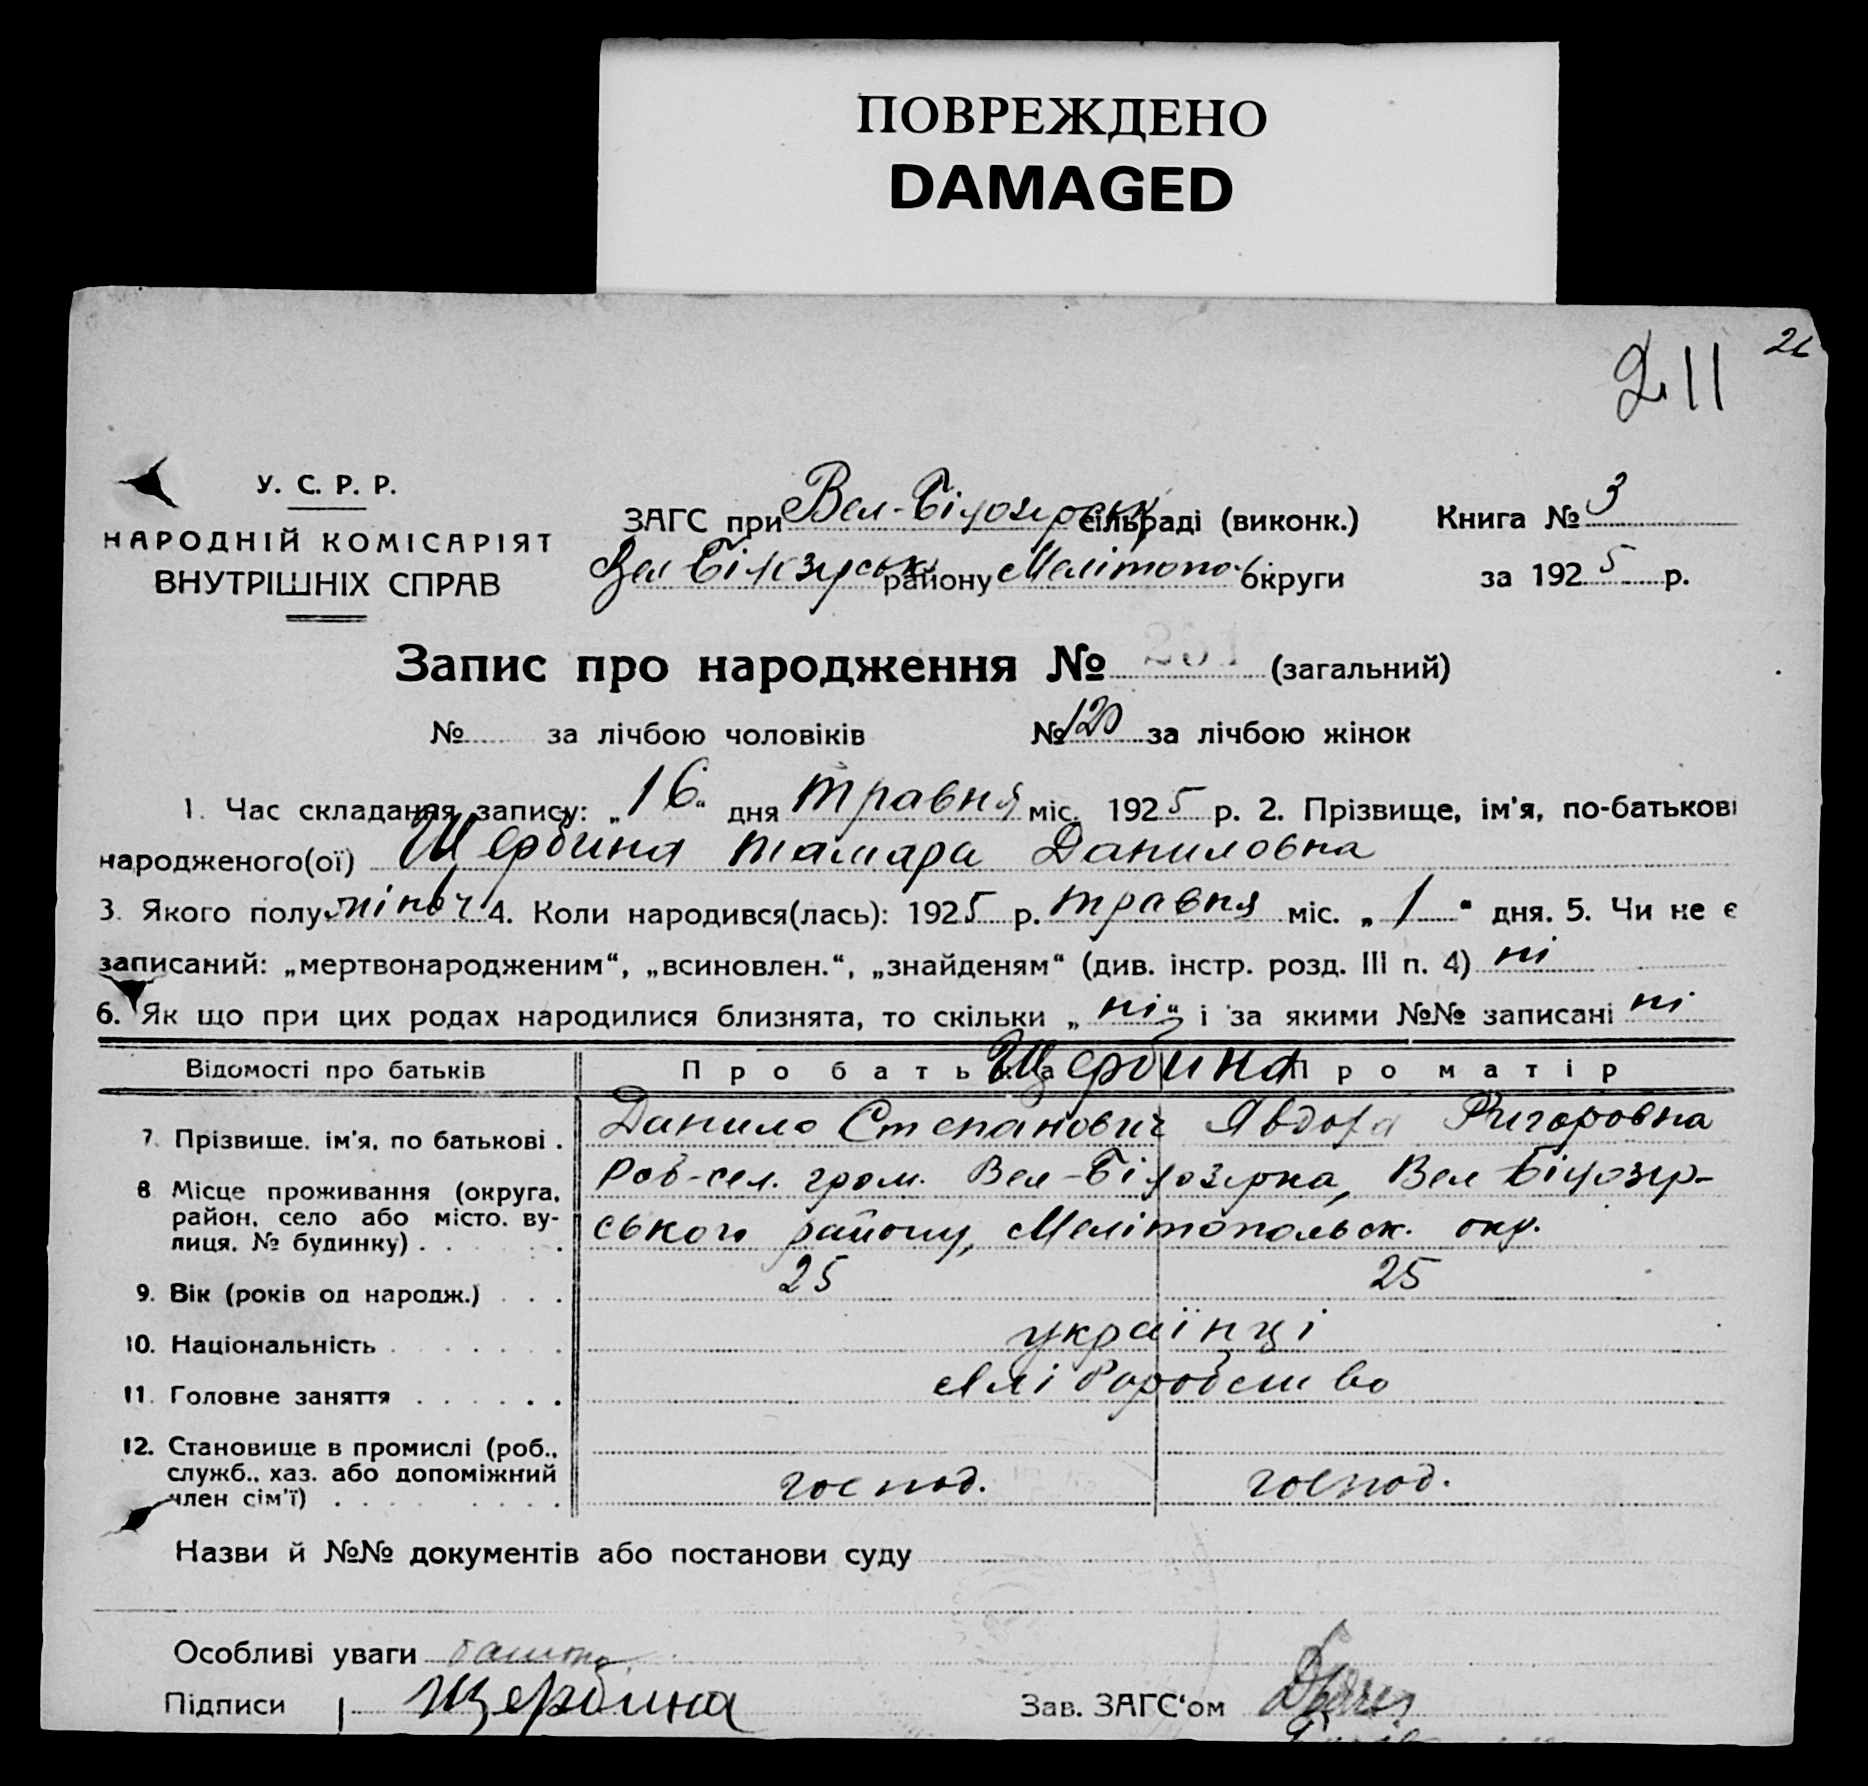 ПОВРЕЖДЕНО
DAMAGED
26
211
У. С. Р. Р.
НАРОДНІЙ КОМІСАРІЯТ
ВНУТРІШНІХ СПРАВ
ЗАГС при Вел-Білозірськ сільраді (виконк.) Книга № 3
Вел Білозірськ району Мелітопол. округи за 1925 р.
Запис про народження № 251 (загальний)
№ за лічбою чоловіків № 120 за лічбою жінок
1. Час складання запису: „16“ дня травня міс. 1925 р. 2. Прізвище, ім'я, по-батькові
народженого(ої) Щербина Тамара Даниловна
3. Якого полу жіноч 4. Коли народився(лась): 1925 р. травня міс. „1“ дня. 5. Чи не є
записаний: „мертвонародженим“, „всиновлен.“, „знайденям“ (див. інстр. розд. III п. 4) ні
6. Як що при цих родах народилися близнята, то скільки „ні“ і за якими №№ записані ні
Відомості про батьків Про батька Щербина Про матір
7. Прізвище, ім'я, по батькові . Данило Степанович Явдоха Григоровна
8 Місце проживання (округа, район, село або місто, ву-
лиця, № будинку) . . . . . Роб-сел. гром. Вел-Білозірка, Вел Білозір-
ського району, Мелітопольськ. окр.
9. Вік (років од народж.) . . . 25 25
10. Національність . . . . . . . українці
11. Головне заняття . . . . . . хліборобство
12. Становище в промислі (роб.,
служб., хаз. або допоміжний
член сім'ї) . . . . . . . . господ. господ.
Назви й №№ документів або постанови суду
Особливі уваги
Підписи Щербина Зав. ЗАГС'ом